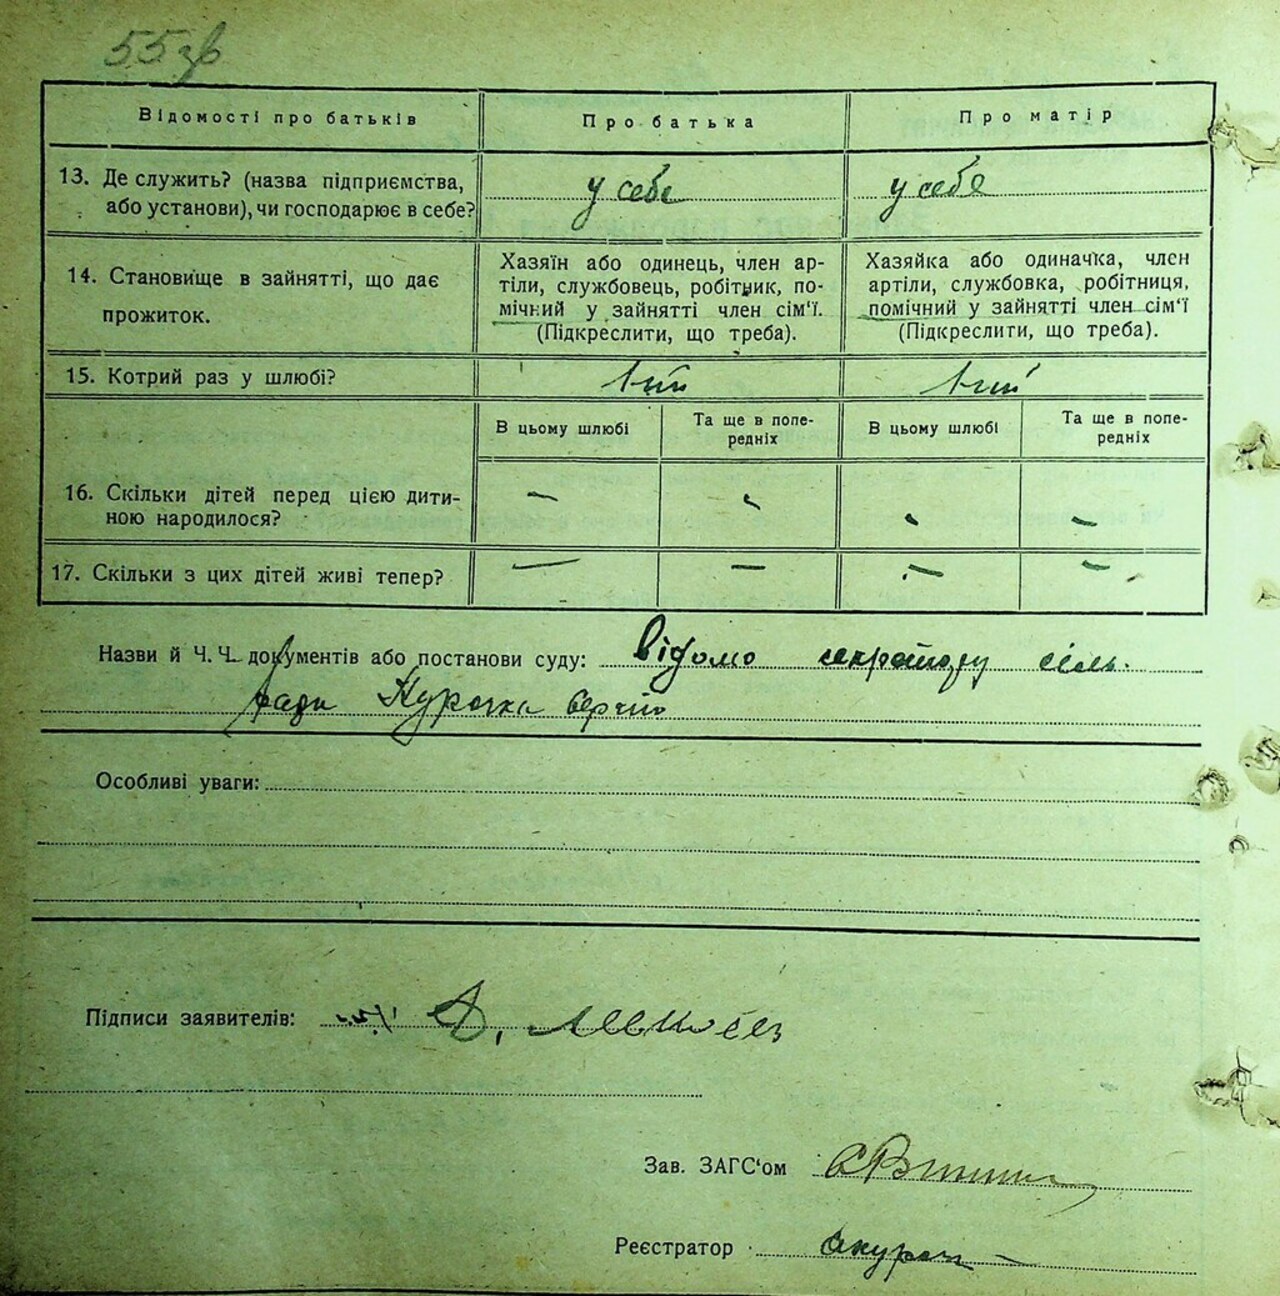 55 зв
Відомості про батьків Про батька Про матір
13. Де служить? (назва підприємства, у себе у себе
або установи), чи господарює в себе?
14. Становище в зайнятті, що дає
прожиток.
Хазяїн або одинець, член ар-
тіли, службовець, робітник, по-
мічний у зайнятті член сім'ї.
(Підкреслити, що треба).
Хазяйка або одиначка, член
артіли, службовка, робітниця,
помічний у зайнятті член сім'ї
(Підкреслити, що треба).
15. Котрий раз у шлюбі? 1-ий 1-ий
В цьому шлюбі
Та ще в попе-
редніх
В цьому шлюбі
Та ще в попе-
редніх
16. Скільки дітей перед цією дити- — — — —
ною народилося?
17. Скільки з цих дітей живі тепер? — — — —
Назви й Ч. Ч. документів або постанови суду: Відомо секретарю сіль.
ради Курочка Сергій
Особливі уваги:
Підписи заявителів:
Зав. ЗАГС'ом
Реєстратор